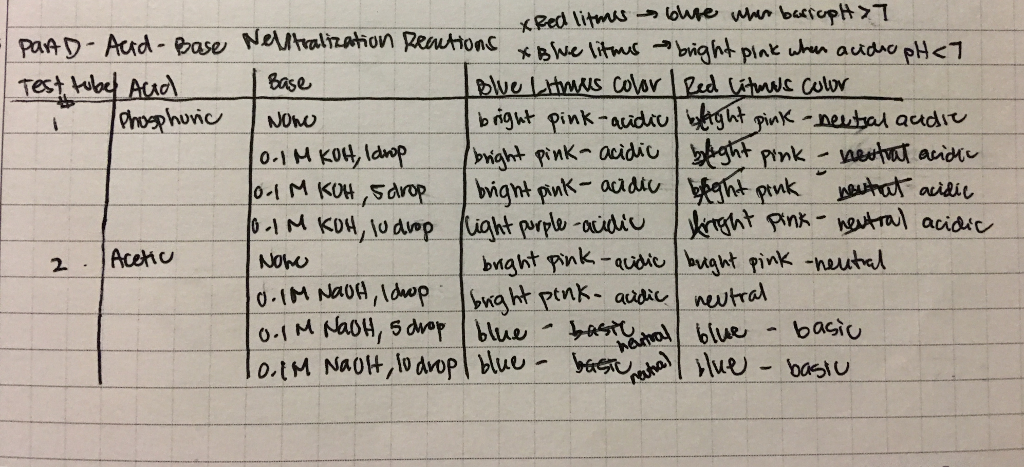 x Red litmus → blue when basic pH > 7
Part D - Acid - Base Neutralization Reactions x Blue litmus → bright pink when acidic pH < 7
Test tube # Acid Base Blue Litmus Color Red Litmus Color
1 Phosphoric None bright pink - acidic bright pink - neutral acidic
0.1 M KOH, 1 drop bright pink - acidic bright pink - neutral acidic
0.1 M KOH, 5 drop bright pink - acidic bright pink - neutral acidic
0.1 M KOH, 10 drop light purple - acidic bright pink - neutral acidic
2. Acetic None bright pink - acidic bright pink - neutral
0.1 M NaOH, 1 drop bright pink - acidic neutral
0.1 M NaOH, 5 drop blue - basic neutral blue - basic
0.1 M NaOH, 10 drop blue - basic neutral blue - basic